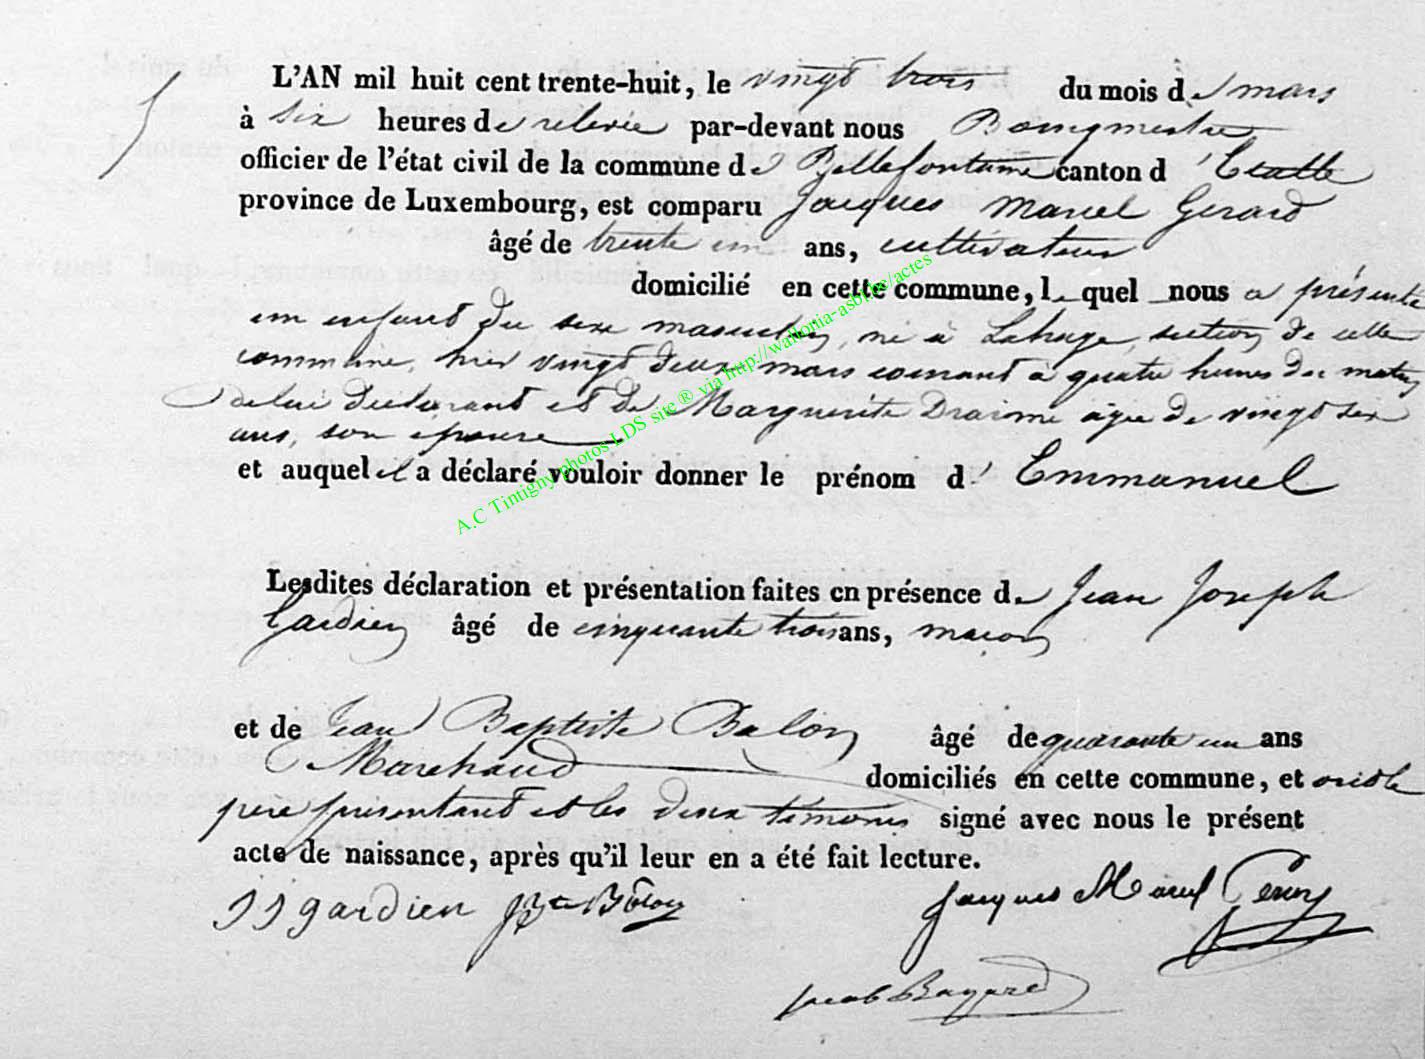 L'AN mil huit cent trente-huit, le vingt trois du mois de mars
à six heures de relevée par-devant nous Bourgmestre
officier de l'état civil de la commune de Bellefontaine canton d'Etalle
province de Luxembourg, est comparu Jacques Marcel Gerard
âgé de trente un ans, cultivateur
domicilié en cette commune, lequel nous a présenté
un enfant du sexe masculin, né à Lahage, section de cette
commune, hier vingt deux mars courant à quatre heures du matin
de lui déclarant et de Marguerite agée de vingt six
ans, son épouse
et auquel il a déclaré vouloir donner le prénom d'Emmanuel
Lesdites déclaration et présentation faites en présence de Jean Joseph
Gardien âgé de cinquante trois ans, maçon
et de Jean Baptiste Balon âgé de quarante un ans
Marchand domiciliés en cette commune, et ont le
père présentant et les deux témoins signé avec nous le présent
acte de naissance, après qu'il leur en a été fait lecture.
JJ gardien JBte Balon Jacques Marcel
Jacob Bayard
A.C Tintigny photos LDS site ® via http://wallonia-asbl.be/actes